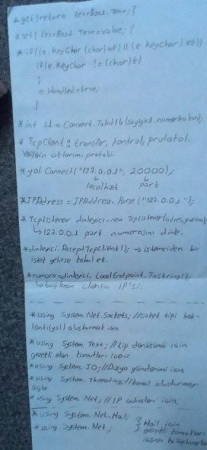 * get{return textBox1.Text;}
* set{ textBox1.Text=value; }
* if((e.KeyChar<(char)48 || (e.KeyChar>57))
if(e.KeyChar != (char)8)
{
e.Handled=true;
}
* int id = Convert.ToInt16(
* TcpClient: transfer, kontrol, protokol.
protokolü
* yol.Connect("127.0.0.1", 20000);
localhost port
* IPAddress = IPAddress.Parse ("127.0.0.1");
* TcpListener dinleyici = new TcpListener(
→127.0.0.1 port numarasını dinle.
* dinleyici.AcceptTcpClient(); → istemciden bir
istek gelirse kabul et.
dinleyici.LocalEndpoint.ToString();
IP'si.
* using System.Net.Sockets; //soket tipi bağ-
lantıyı oluşturmak için
* using System.Text; //tip dönüşümü için
gerekli olan
* using System.IO; //Dosya gönderimi için
* using System.Threading; //kanal oluşturmak
için
* using System.Net; //IP adresleri için
* using System.Net.Mail;
* using System.Net; } Mail için
gerekli